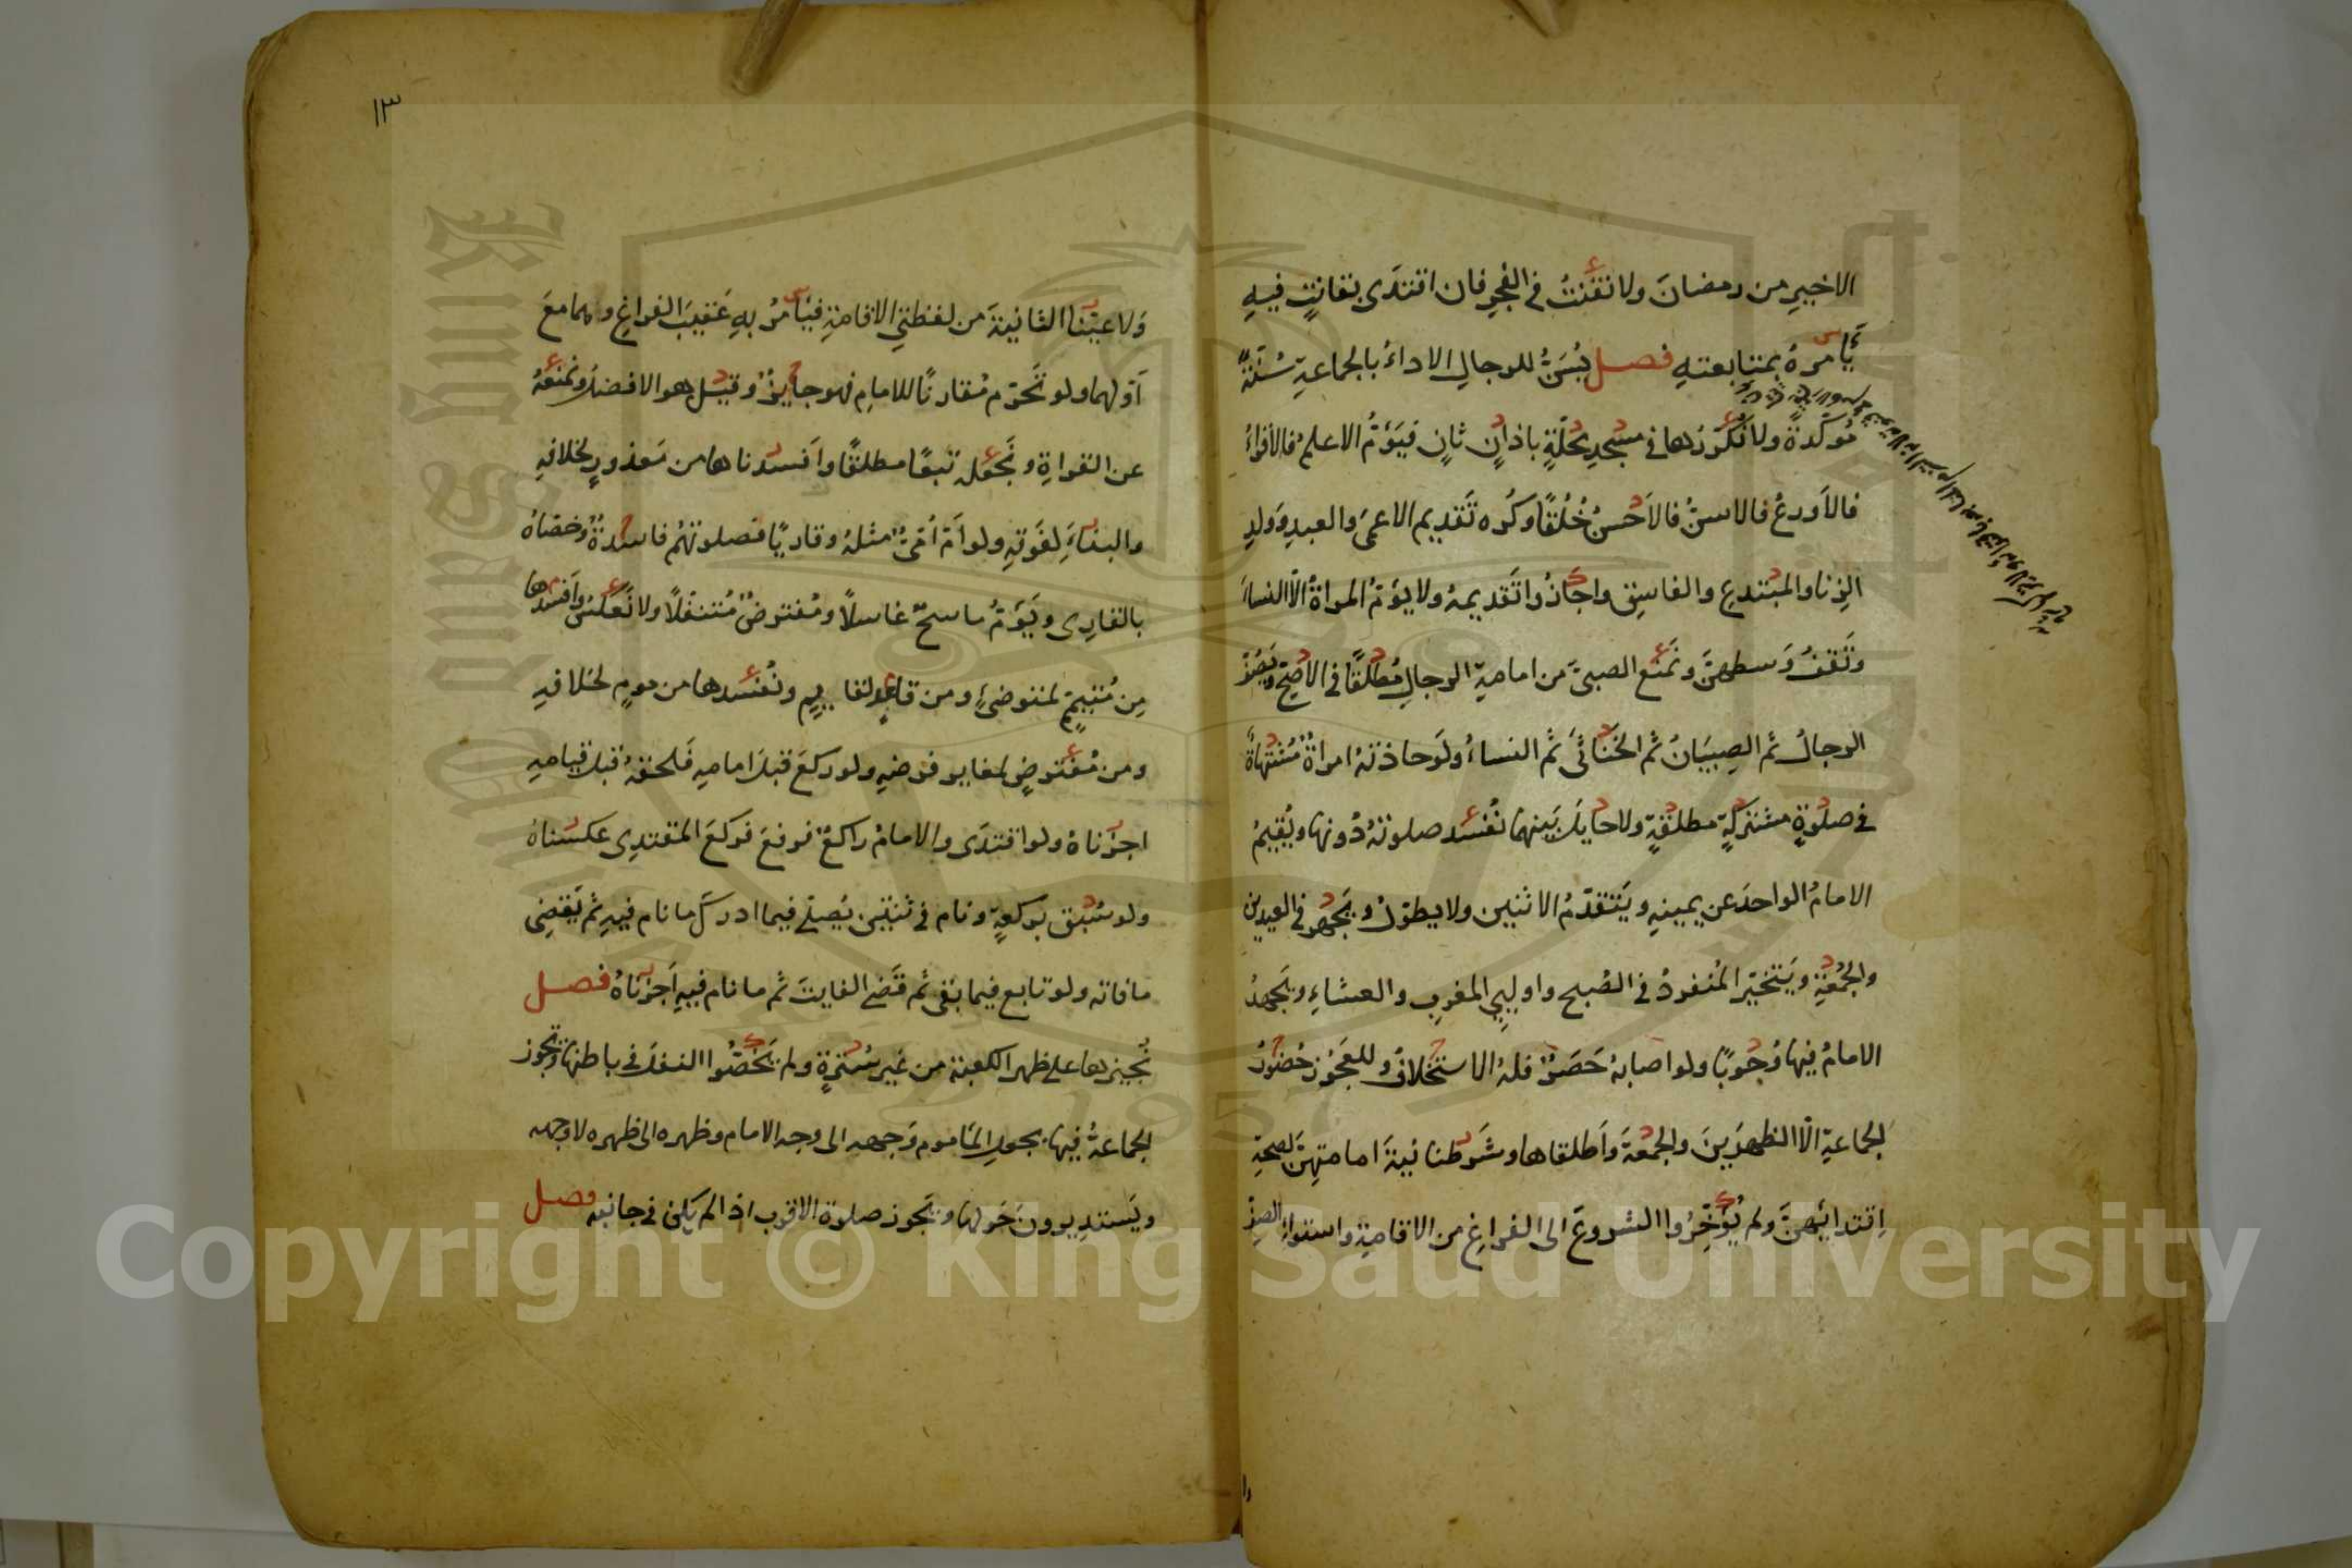 الاخير من رمضانَ ولا نقنتُ في الفجرِ فان اقتدَى بقانتٍ فيه
يَأمرهُ بمتابعتهِ فصل يُسَنُّ للرجالِ الاداءُ بالجماعةِ سُنّةً
مؤكّدةً ولا نُكرّرُها في مسجدِ محلّةٍ باذانٍ ثانٍ فيَؤمُّ الاعلمُ فالأقراءُ
فالأَورعُ فالاسنُّ فالاَحْسنُ خُلُقًا وكُره تَقديم الاعمَى والعبدِ وَولدِ
الزِنا والمبتدعِ والفاسِقِ واجَازُوا تَقديمهُ ولا يؤمُّ المراةُ الّا النساءَ
وتَقفُ وَسطهنَّ ونَمنَع الصبيَّ من امامةِ الرجالِ مُطلقًا في الاصَحِّ ويَصُفُّ
الرجالُ ثم الصِبيَانُ ثم الخَنَاثَى ثم النساءُ ولَوحاذتهُ امراةٌ مُشتهاةٌ
في صلوةٍ مشتركةٍ مطلقةٍ ولا حايلَ بَينهما نُفسد صلوتهُ دُونها ويُقيمُ
الامامُ الواحدَ عن يمينهِ ويَتقدّمُ الاثنين ولا يطوّلُ ويَجهرُ في العيدين
والجُمُعةِ ويَتخيّر المُنفردُ في الصُبح واوليي المغربِ والعشاءِ ويَجهرُ
الامامُ فيها وُجُوبًا ولو اصابهُ حَصَرٌ فلهُ الاستخلافُ وللعَجُوزِ حُضُورُ
الجماعةِ الّا الظهرَينَ والجمُعةَ وَاَطلقاها وشَرَطنا نيةَ امامتهِنَّ لصحةِ
اِقتدائهنَّ ولم يُؤَخِّرُوا الشروعَ الى الفراغِ من الاقامةِ واستواءِ الصفّ
١٣
وَلا عيّنّا الثانيةَ من لفظتي الاقامةِ فيَأمُرُ بهِ عَقيبَ الفراغِ وهما معَ
اَوّلهما ولو تَحرّم مُقارنًا للامامِ فهو جايزٌ وقيل هو الافضلُ ونمنعهُ
عن القراةِ ونَجعَله تبعًا مطلقًا وافسدناها من مَعذورٍ لخلافهِ
والبناءَ لِفَوتهِ ولو اَمّ اُمّيٌّ مثلهُ وقاريًا فصلوتهُم فاسدةٌ وخصّاهُ
بالقارِى ويَؤمُّ ماسحٌ غاسلًا ومُفترضٌ مُتنفّلًا ولا نَعكسُ وأفسدها
مِن مُتيمّمٍ لمتوضئٍ ومن قاعدٍ لقايمٍ ونُفسدها من مومٍ لخلافهِ
ومن مُفترضٍ لمغاير فرضهِ ولو ركعَ قبلَ امامهِ فلحقهُ قبلَ قيامهِ
اجزناهُ ولو اقتدَى والامامُ راكعٌ فرفعَ فركعَ المقتدِى عكسناهُ
ولو سُبق بركعةٍ ونام في ثنتين يُصلّي فيما ادركَ ما نام فيهِ ثم يَقضِى
ما فاته ولو تابع فيما بَقى ثم قَضى الفايتَ ثم ما نام فيهِ اَجزناهُ فصل
نُجيزها على ظهر الكعبة من غَير سُترةٍ ولم يَخُصّوا النفلَ في باطنها وتجوز
الجماعةُ فيها بجعلِ الماموم وَجههِ الى وجه الامام وظهره الى ظهره لا وجهه
ويَستديرونَ حَولها وتجوز صلوة الاقرب اذا لم يكن في جانبه فصل
Copyright © King Saud University